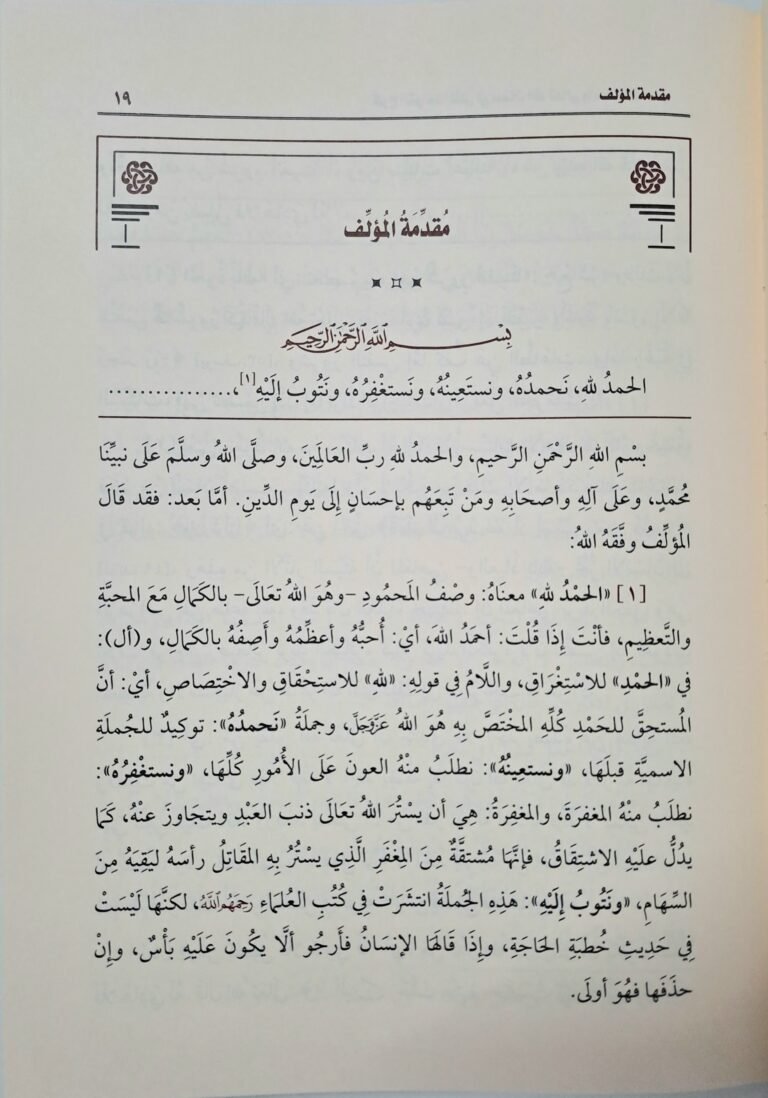 مقدمة المؤلف ١٩
مُقدِّمَةُ المُؤلِّف
بِسْمِ اللَّهِ الرَّحْمَٰنِ الرَّحِيمِ
الحمدُ للهِ، نَحمدُهُ، ونستَعِينُهُ، ونَستغْفِرُهُ، ونَتُوبُ إلَيْهِ[١]،................
بِسْمِ اللهِ الرَّحْمَنِ الرَّحيمِ، والحمدُ للهِ ربِّ العَالَمِينَ، وصلَّى اللهُ وسلَّمَ عَلَى نبيِّنَا
مُحمَّدٍ، وعَلَى آلِهِ وأصحَابِهِ ومَنْ تَبِعَهُم بإحسَانٍ إلَى يَومِ الدِّينِ. أمَّا بَعد: فقَد قَالَ
المُؤلِّفُ وفَّقَهُ اللهُ:
[١] «الحَمْدُ للهِ» معنَاهُ: وصْفُ المَحمُودِ -وهُوَ اللهُ تعَالَى- بالكَمَالِ مَعَ المحبَّةِ
والتَّعظِيمِ، فأنْتَ إذَا قُلْتَ: أحمَدُ اللهَ، أيْ: أُحبُّهُ وأعظِّمُهُ وأَصِفُهُ بالكَمَالِ، و(أل):
في «الحَمْدِ» للاسْتِغْرَاقِ، واللَّامُ فِي قولِهِ: «للهِ» للاستِحْقَاقِ والاخْتِصَاصِ، أيْ: أنَّ
المُستحِقَّ للحَمْدِ كُلِّهِ المخْتَصَّ بِهِ هُوَ اللهُ عَزَّوَجَلَّ، وجملَةُ «نَحمدُهُ»: توكِيدٌ للجُملَةِ
الاسميَّةِ قبلَهَا، «ونستعِينُهُ»: نطلَبُ منْهُ العونَ عَلَى الأُمُورِ كُلِّهَا، «ونستغْفِرُهُ»:
نطلَبُ منهُ المغفرَةَ، والمغفِرَةُ: هِيَ أن يسْتُرَ اللهُ تعَالَى ذنبَ العَبْدِ ويتجَاوزَ عنْهُ، كَمَا
يدُلُّ علَيْهِ الاشتِقَاقُ، فإنَّهَا مُشتقَّةٌ مِنَ المِغْفَرِ الَّذِي يسْتُرُ بِهِ المقَاتِلُ رأسَهُ ليَقِيَهُ مِنَ
السِّهَامِ، «ونَتُوبُ إِلَيْهِ»: هَذِهِ الجُملَةُ انتشَرَتْ فِي كُتُبِ العُلمَاءِ رَحِمَهُمُ اللَّهُ، لكنَّهَا لَيْسَتْ
فِي حَدِيثِ خُطبَةِ الحَاجَةِ، وإذَا قالَهَا الإنسَانُ فأَرجُو ألَّا يكُونَ عَلَيْهِ بَأْسٌ، وإِنْ
حذَفَها فهُوَ أولَى.